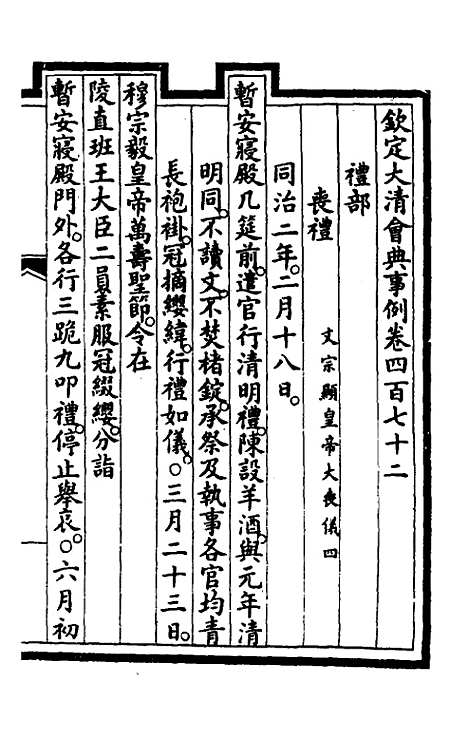 欽定大清會典事例卷四百七十二
禮部
喪禮 文宗顯皇帝大喪儀四
同治二年。二月十八日。
暫安寢殿几筵前。遣官行清明禮。陳設羊酒。與元年清
明同。不讀文。不焚楮錠。承祭及執事各官均青
長袍褂。冠摘纓緯。行禮如儀。○三月二十三日。
穆宗毅皇帝萬壽聖節。令在
陵直班王大臣二員。素服冠綴纓。分詣
暫安寢殿門外。各行三跪九叩禮。停止舉哀。○六月初